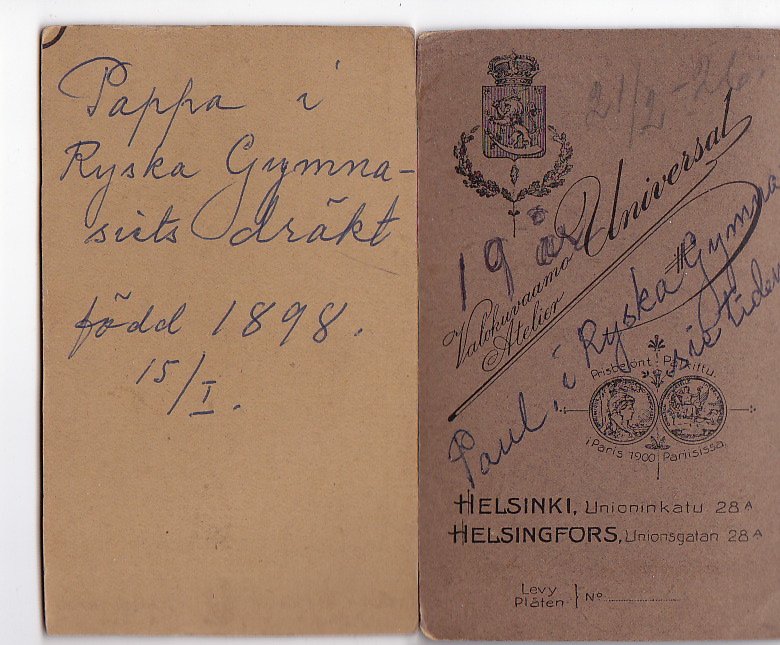 Pappa i
Ryska Gymna-
siets dräkt
född 1898.
15/I.
21/2-26.
Universal
19
Valokuvaamo
Atelier
Paul, i Ryska Gymna
sie tiden
Prisbelönt Palkittu.
i Paris 1900 Pariisissa.
HELSINKI, Unioninkatu 28 A
HELSINGFORS, Unionsgatan 28 A
Levy
Plåten } No